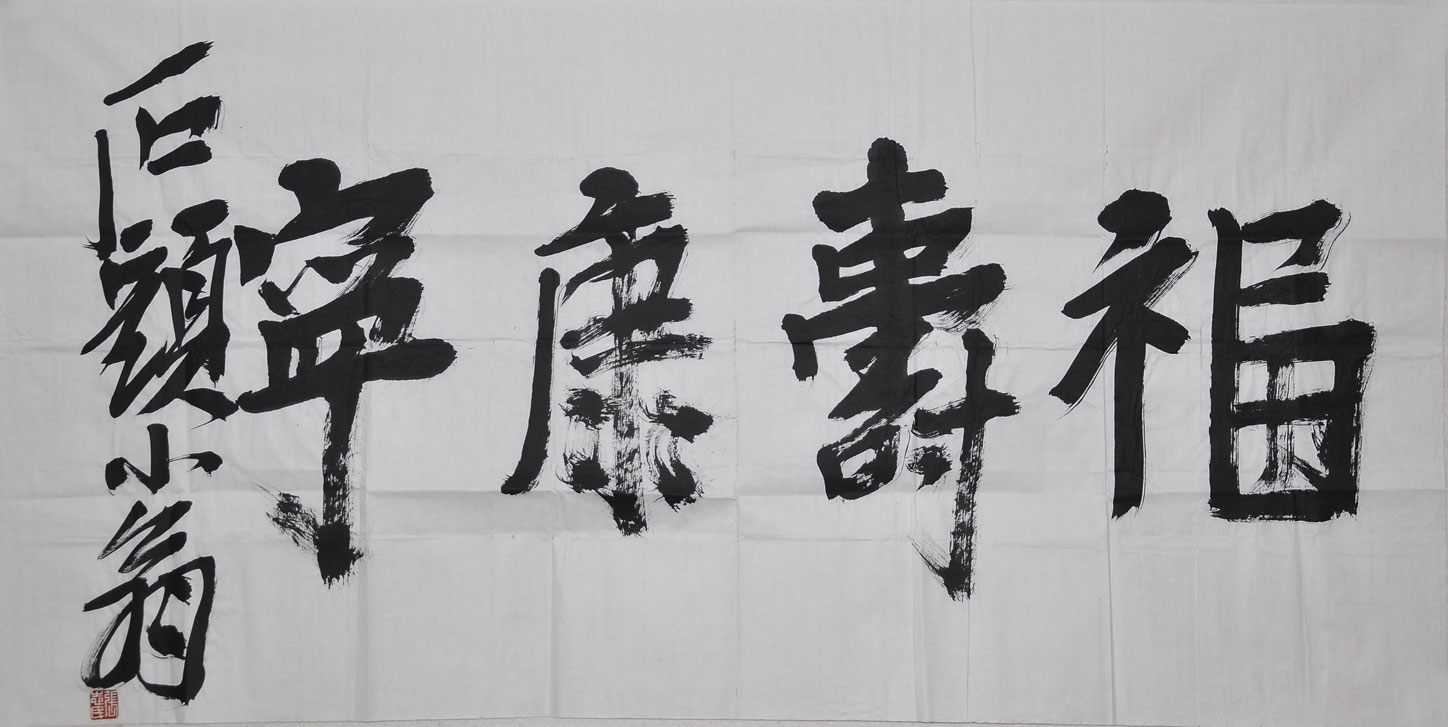 福壽康寧
石頭小翁